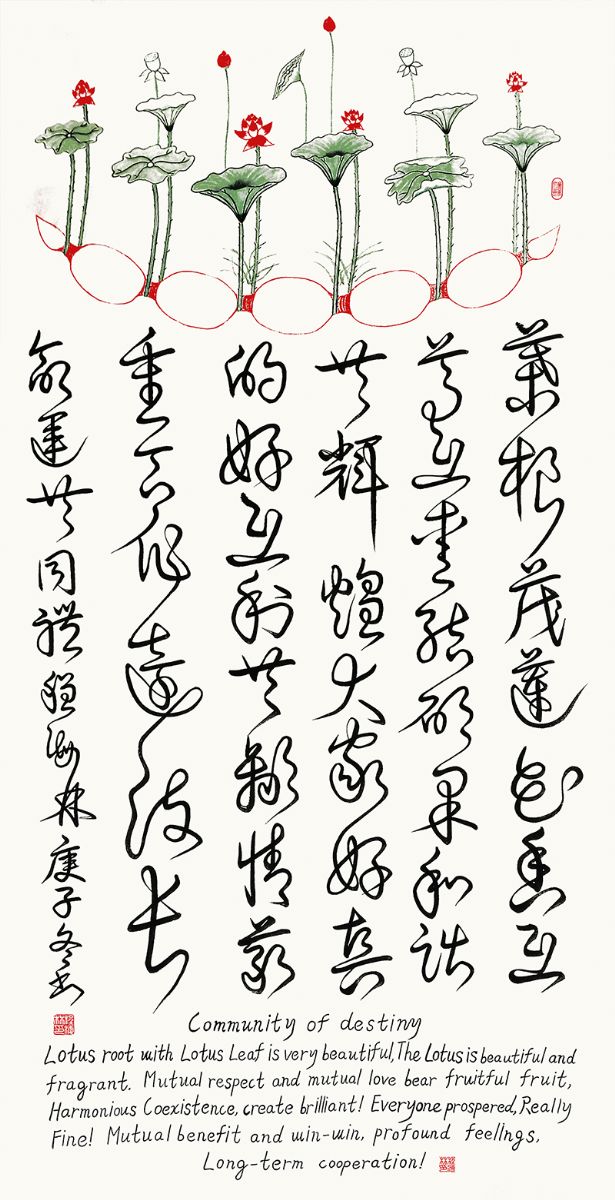 葉根茂蓮花香互
尊互愛結碩果和諧
共輝煌大家好真
的好互利共贏情義
重合作遠长
命運共同體海林庚子冬书
Community of destiny
Lotus root with Lotus Leaf is very beautiful, The Lotus is beautiful and
fragrant. Mutual respect and mutual love bear fruitful fruit,
Harmonious Coexistence, create brilliant! Everyone prospered, Really
Fine! Mutual benefit and win-win, profound feelings,
Long-term cooperation!